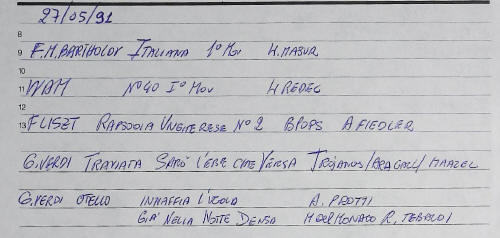 27/05/91
8
9 F.M. BARTHOLDY ITALIANA 1° Mov
10
11 WAM N° 40 I° Mov
12
13 F LISZT RAPSODIA UNGHERESE N° 2 BPOPS A FIEDLER
G. VERDI TRAVIATA SARÒ L'EBE CHE VERSA /ARAGALL/MAAZEL
G. VERDI OTELLO INNAFFIA L'UGOLA A. PROTTI
GIÀ NELLA NOTTE DENSA M. DEL MONACO R. TEBALDI